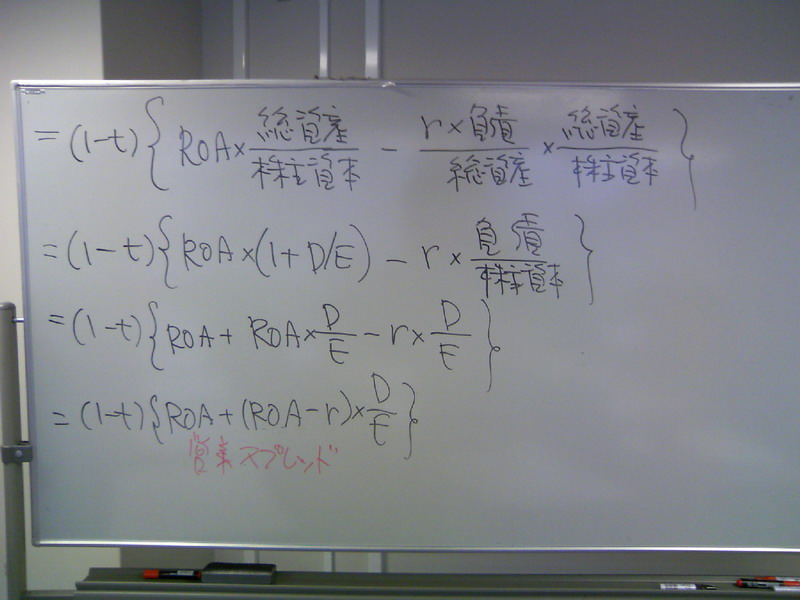 = (1-t) { ROA × 総資産/株主資本 - r × 負債/総資産 × 総資産/株主資本 }
= (1-t) { ROA × (1 + D/E) - r × 負債/株主資本 }
= (1-t) { ROA + ROA × D/E - r × D/E }
= (1-t) { ROA + (ROA - r) × D/E }
営業スプレッド